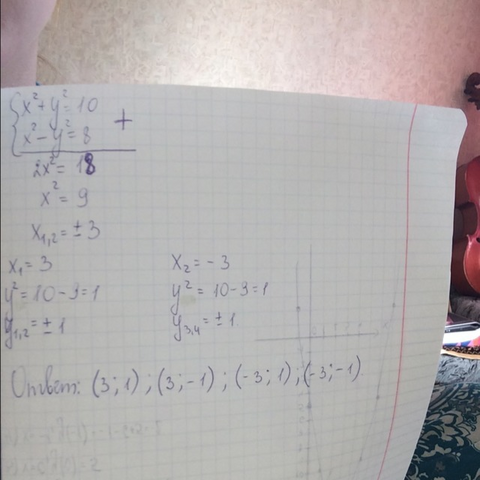 x²+y²=10
x²-y²=8 +
2x²=18
x²=9
x₁,₂=±3
x₁=3 x₂=-3
y²=10-9=1 y²=10-9=1
y₁,₂=±1 y₃,₄=±1
Ответ: (3;1);(3;-1);(-3;1);(-3;-1)